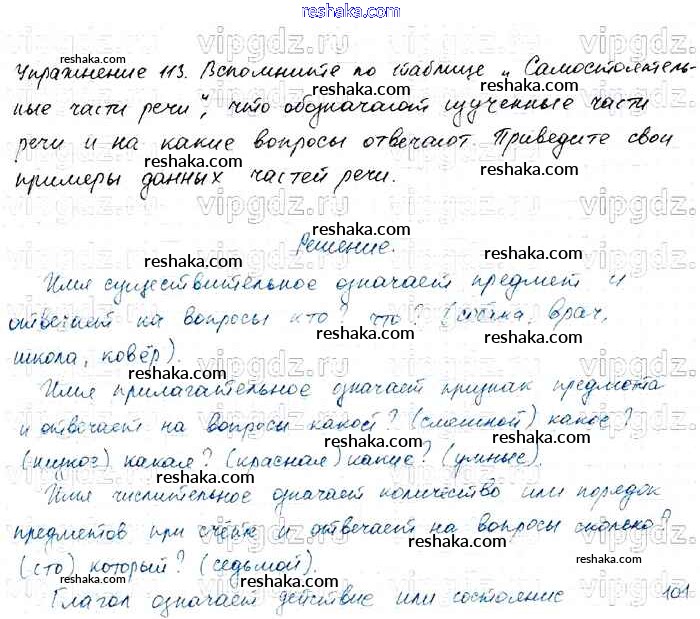 Упражнение 113. Вспомните по таблице „Самостоятель-
ные части речи", что обозначают изученные части
речи и на какие вопросы отвечают. Приведите свои
примеры данных частей речи.
Решение.
Имя существительное означает предмет и
отвечает на вопросы кто? что? (врач,
школа, ковёр).
Имя прилагательное означает признак предмета
и отвечает на вопросы какой? (смешной) какое?
(низкое) какая? (красная) какие? (умные).
Имя числительное означает количество или порядок
предметов при счёте и отвечает на вопросы сколько?
(сто) который? (седьмой).
Глагол означает действие или состояние
101
reshaka.com
vipgdz.ru